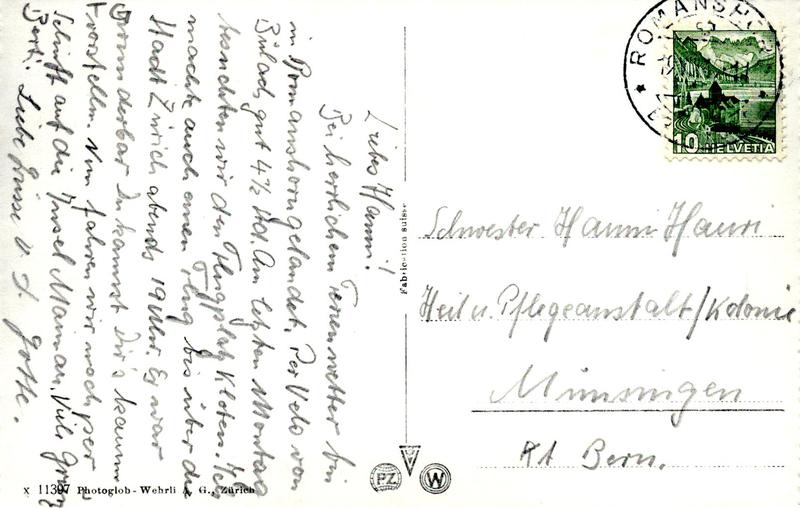 Liebes Hanni!
Bei herrlichem Ferienwetter bin
in Romanshorn gelandet. Per Velo von
Bülach gut 4½ Std. Am letzten Montag
besuchten wir den Flugplatz Kloten. Ich
machte auch einen Flug bis über die
Stadt Zürich abends 19 Uhr. Es war
wunderbar Du kannst Dir's kaum
vorstellen. Nun fahren wir noch per
Schiff auf die Insel Mainau. Viele Grüsse
Berti. Liebe Grüsse v. d. Gotte.
Fabrication suisse
ROMANSHORN
10 HELVETIA
Schwester Hanni Hauri
Heil u. Pflegeanstalt/Kolonie
Münsingen
Kt Bern.
PZ W
x 11397 Photoglob-Wehrli A. G., Zürich